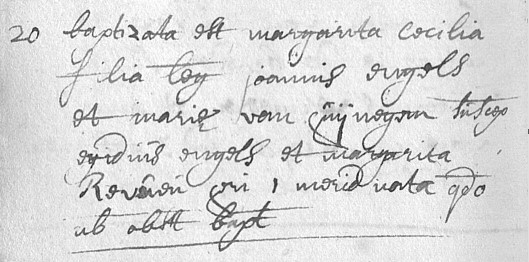 20 baptizata est margarita Cecilia
filia leg joannis engels
et mariæ van nijnegen suscep
egidius engels et margarita
merid nata qdo
ab obst bapt